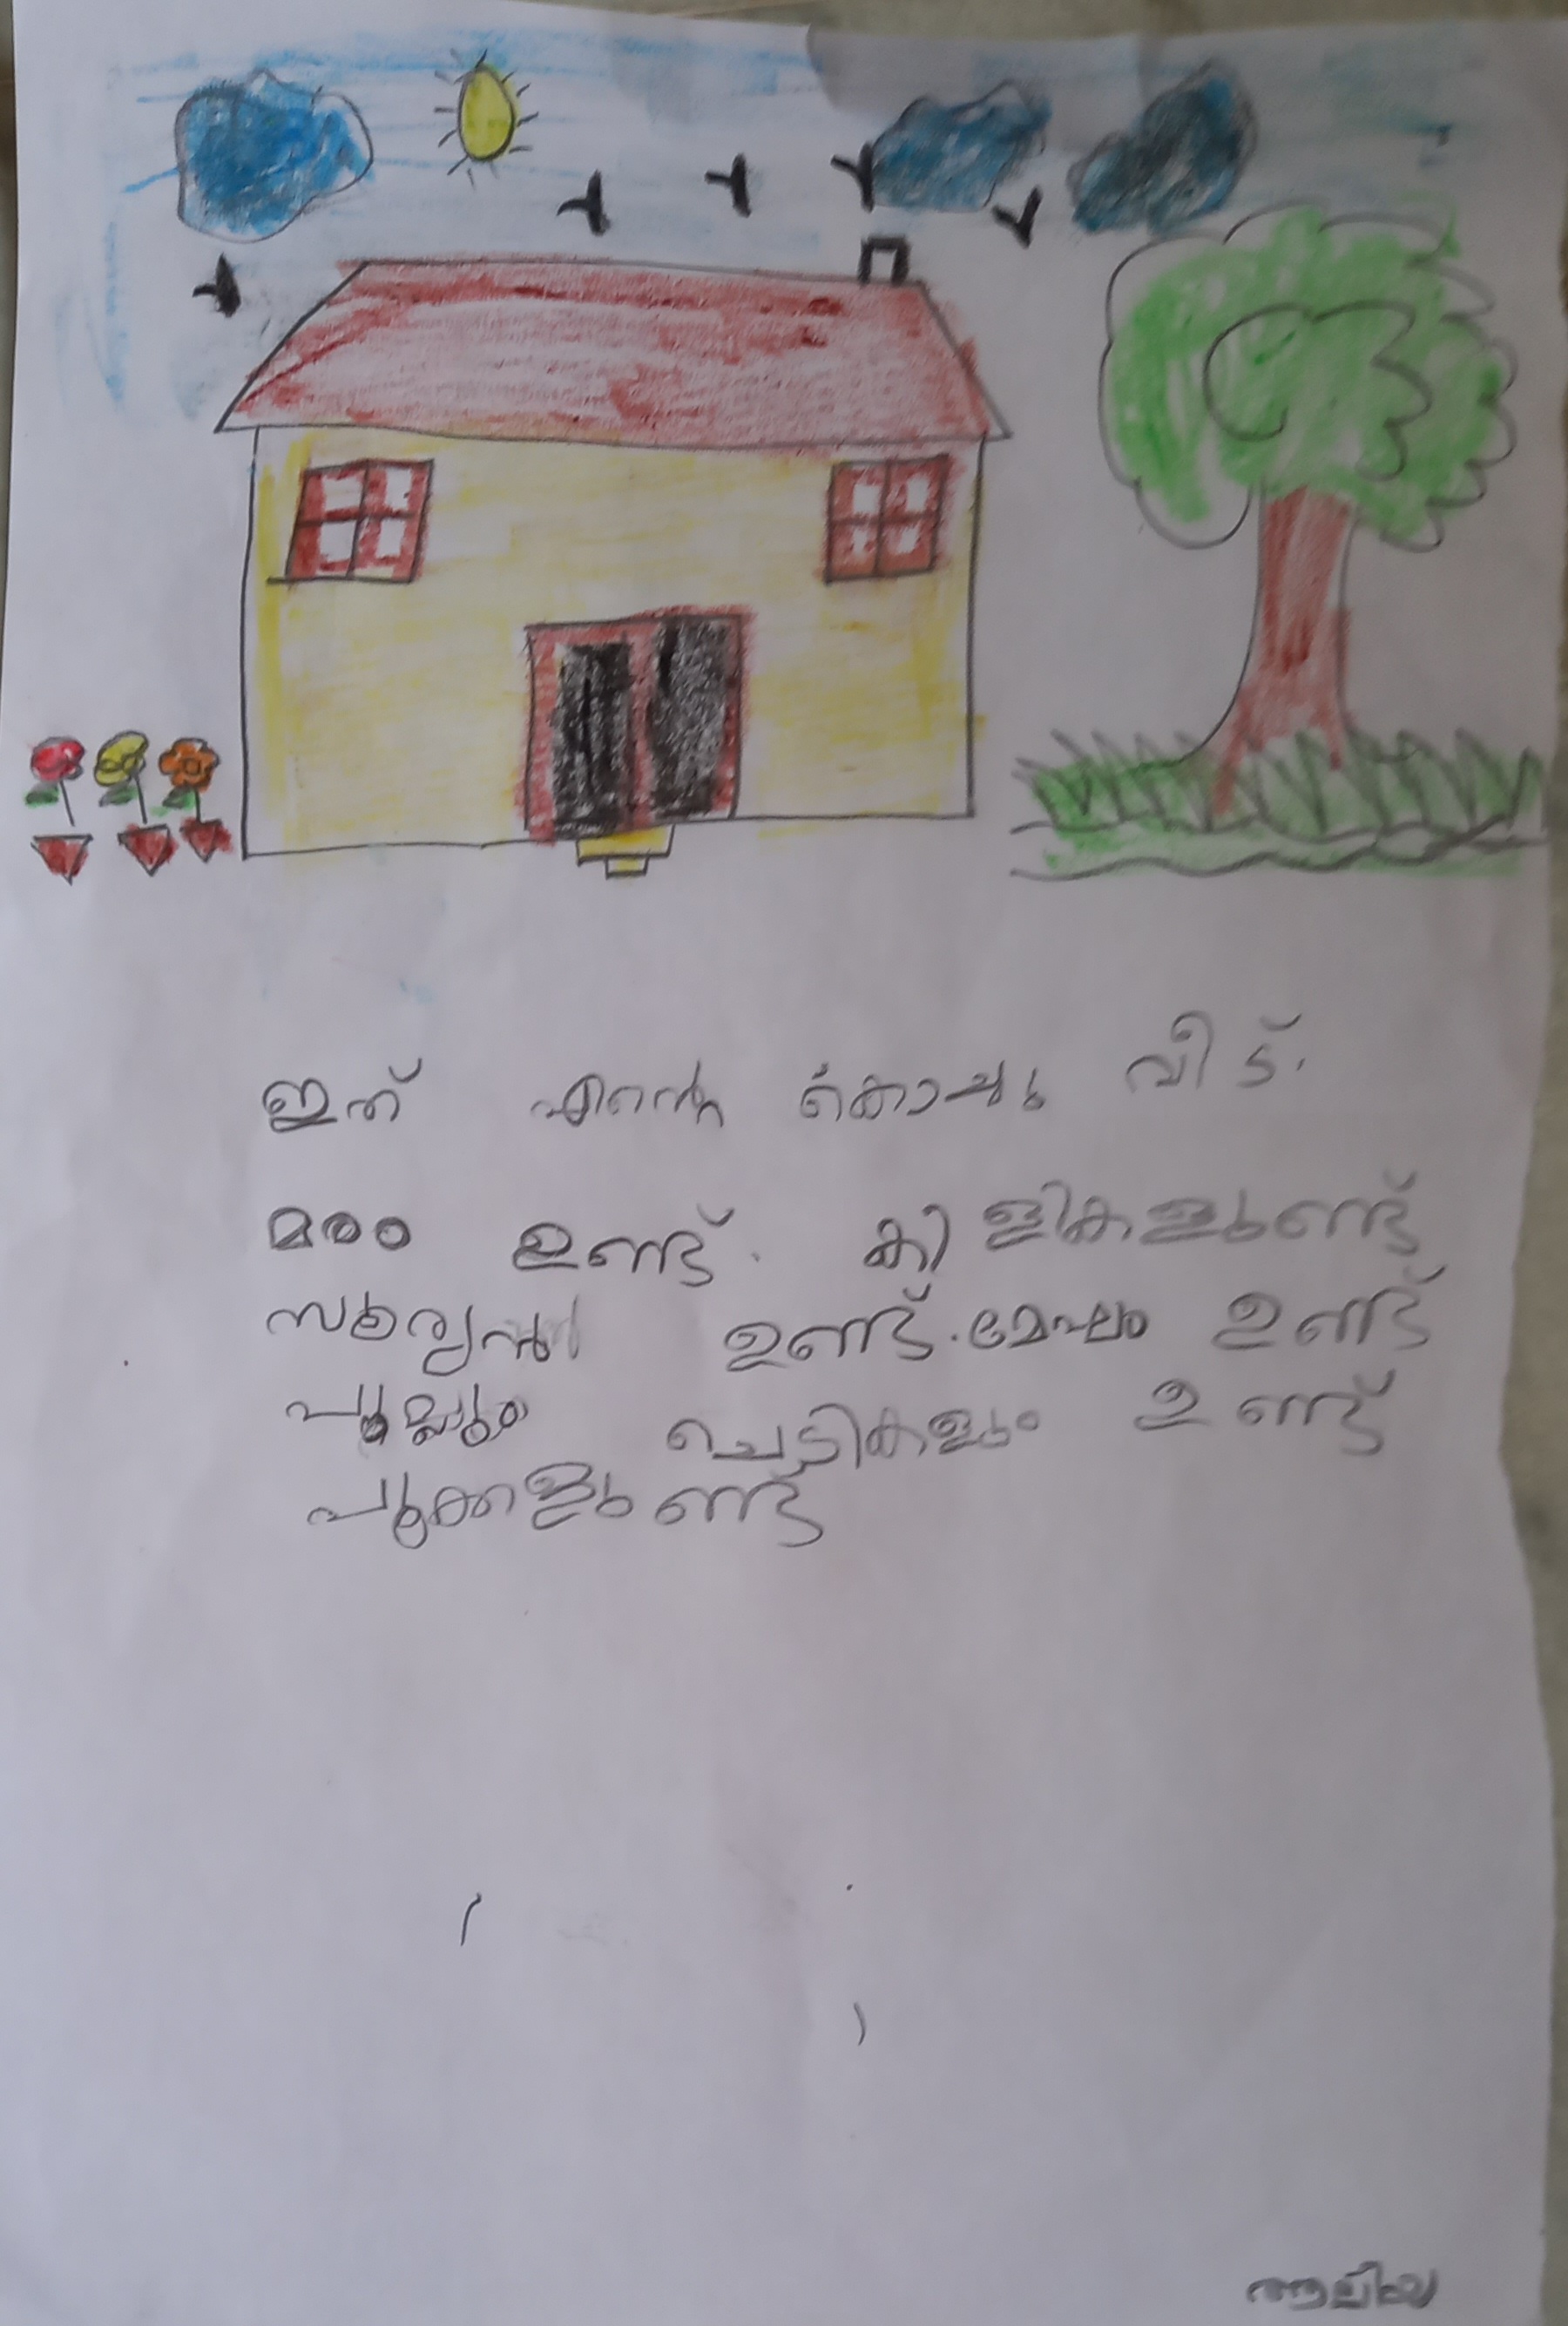 ഇത് എന്റെ കൊച്ചു വീട്.
മരം ഉണ്ട്. കിളികളുണ്ട്
സൂര്യൻ ഉണ്ട്. മേഘം ഉണ്ട്
പുല്ലും ചെടികളും ഉണ്ട്
പൂക്കളുണ്ട്
ആലിയ